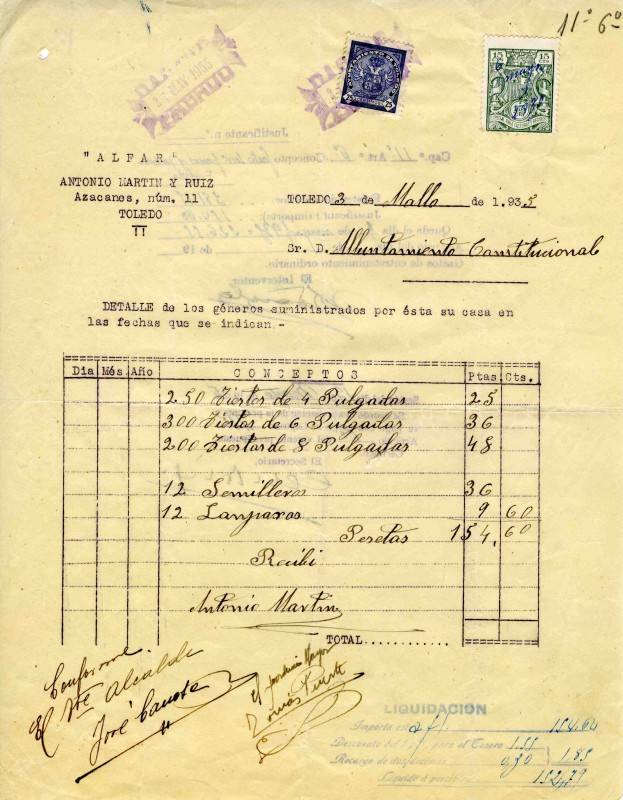 11º 6º
PAGADO
AYUNTAMIENTO DE TOLEDO
25 25
15 CTS 15 CTS
Justificante n.º
Cap. 11 Art.º 6º Concepto
"ALFAR"
ANTONIO MARTIN Y RUIZ
Azacanes, núm. 11
TOLEDO
TOLEDO 3 de Mallo de 1.935
Sr. D. Alluntamiento Constitucional
Gastos de entretenimiento ordinario
El Interventor
DETALLE de los géneros suministrados por ésta su casa en
las fechas que se indican.-
Dia Més Año CONCEPTOS Ptas Cts.
250 Tiestos de 4 Pulgadas 25
300 Tiestos de 6 Pulgadas 36
200 Tiestos de 8 Pulgadas 48
El Secretario
12 Semilleros 36
12 Lanparas 9 60
Pesetas 154, 60
Recibi
Antonio Martin
TOTAL............
Conforme
El Tte Alcalde
José
El Mayor
Tomás
LIQUIDACIÓN
Importa est 154,60
Descuento del para el Tesoro 1,55
Recargo de 0,30 1,85
Líquido 152,79